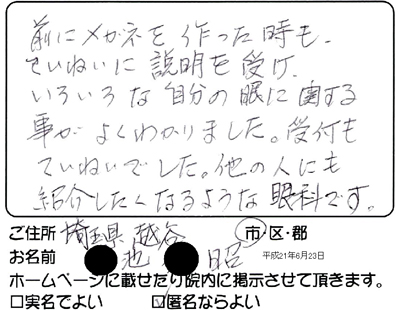 前にメガネを作った時も、
ていねいに説明を受け、
いろいろな自分の眼に関する
事がよくわかりました。受付も
ていねいでした。他の人にも
紹介したくなるような眼科です。
ご住所 埼玉県 越谷 市・区・郡
お名前 池 昭 平成21年6月23日
ホームページに載せたり院内に掲示させて頂きます。
□実名でよい ☑匿名ならよい